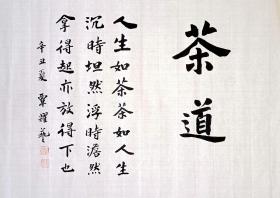 茶道
人生如茶茶如人生
沉時坦然浮時潺然
拿得起亦放得下也
辛丑夏 覃耀藝